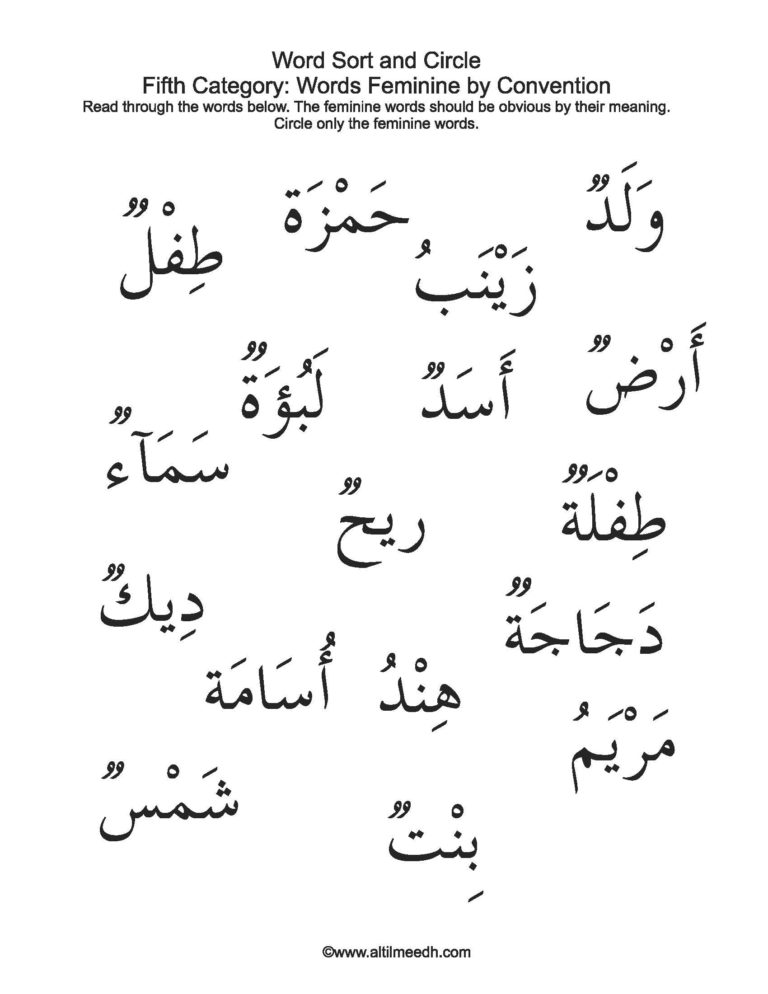 Word Sort and Circle
Fifth Category: Words Feminine by Convention
Read through the words below. The feminine words should be obvious by their meaning.
Circle only the feminine words.
وَلَدٌ
حَمْزَة
طِفْلٌ
زَيْنَبُ
أَرْضٌ
أَسَدٌ
لَبُؤَةٌ
سَمَآءٌ
طِفْلَةٌ
رِيحٌ
دِيكٌ
دَجَاجَةٌ
هِنْدُ
أُسَامَة
مَرْيَمُ
شَمْسٌ
بِنْتٌ
©www.altilmeedh.com